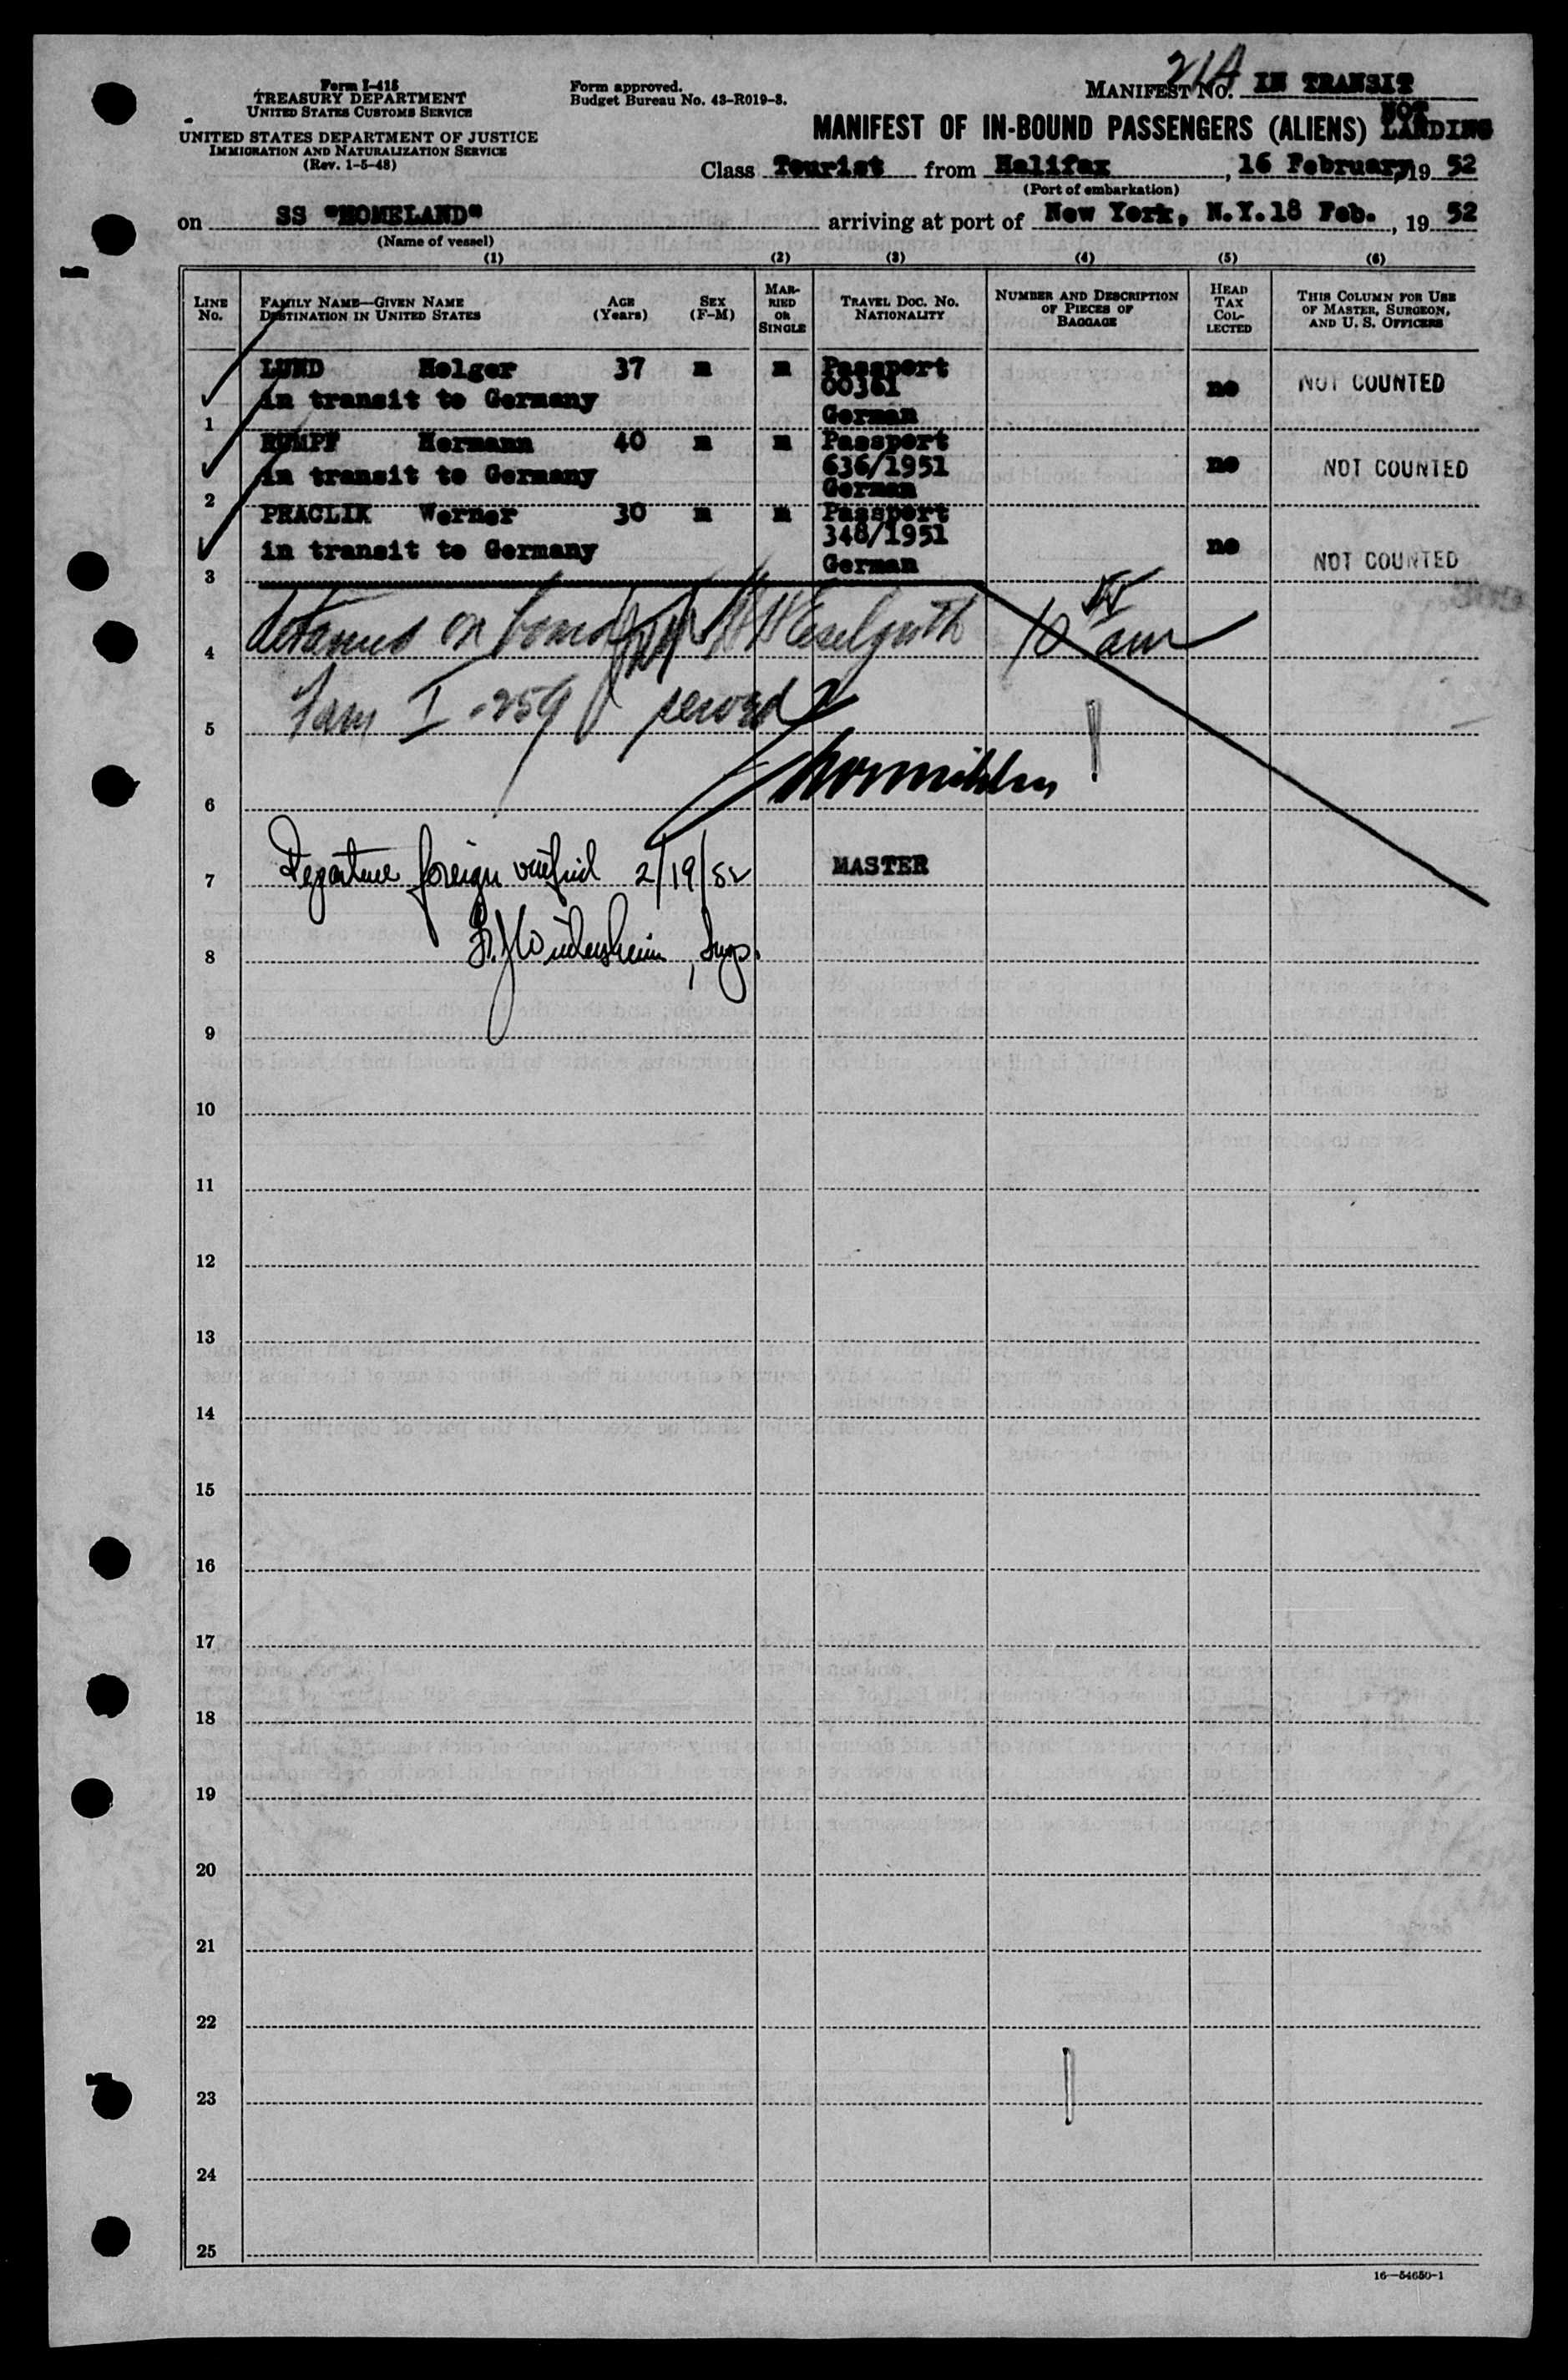 Form I-415
TREASURY DEPARTMENT
UNITED STATES CUSTOMS SERVICE
UNITED STATES DEPARTMENT OF JUSTICE
IMMIGRATION AND NATURALIZATION SERVICE
(Rev. 1-5-48)
Form approved.
Budget Bureau No. 43-R019-3.
21A
MANIFEST NO. IN TRANSIT
NOT
MANIFEST OF IN-BOUND PASSENGERS (ALIENS) LANDING
Class Tourist from Halifax, 16 February, 19 52
(Port of embarkation)
on SS "HOMELAND" arriving at port of New York, N.Y. 18 Feb., 19 52
(Name of vessel)
(1) (2) (3) (4) (5) (6)
LINE No.
FAMILY NAME—GIVEN NAME
DESTINATION IN UNITED STATES
AGE (Years)
SEX (F-M)
MARRIED OR SINGLE
TRAVEL DOC. NO. NATIONALITY
NUMBER AND DESCRIPTION OF PIECES OF BAGGAGE
HEAD TAX COLLECTED
THIS COLUMN FOR USE OF MASTER, SURGEON, AND U. S. OFFICERS
LUND Holger 37 m m Passport
00361
in transit to Germany no NOT COUNTED
1 German
RUMPF Hermann 40 m m Passport
in transit to Germany 636/1951 no NOT COUNTED
2 German
PRACLIK Werner 30 m m Passport
348/1951
in transit to Germany no NOT COUNTED
3 German
4 on 10 am
5 I-259
6
7 Departure foreign verified 2/19/52 MASTER
8 Insp.
9
10
11
12
13
14
15
16
17
18
19
20
21
22
23
24
25
16—54650-1